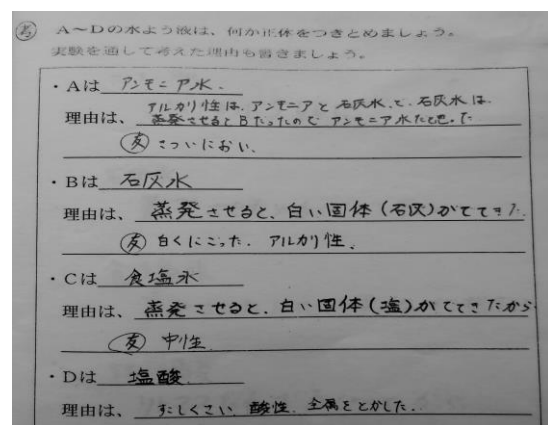 考 A～Dの水よう液は、何か正体をつきとめましょう。
実験を通して考えた理由も書きましょう。
・Aは アンモニア水.
アルカリ性は、アンモニアと石灰水.と、石灰水は.
理由は、蒸発させるとBだったのでアンモニア水だと思った
友 さついにおい.
・Bは 石灰水
理由は、蒸発させると、白い固体(石灰)がでてきた.
友 白くにごった. アルカリ性.
・Cは 食塩水
理由は、蒸発させると、白い固体(塩)がでてきたから
友 中性
・Dは 塩酸
理由は、すこしくさい 酸性. 金属をとかした.